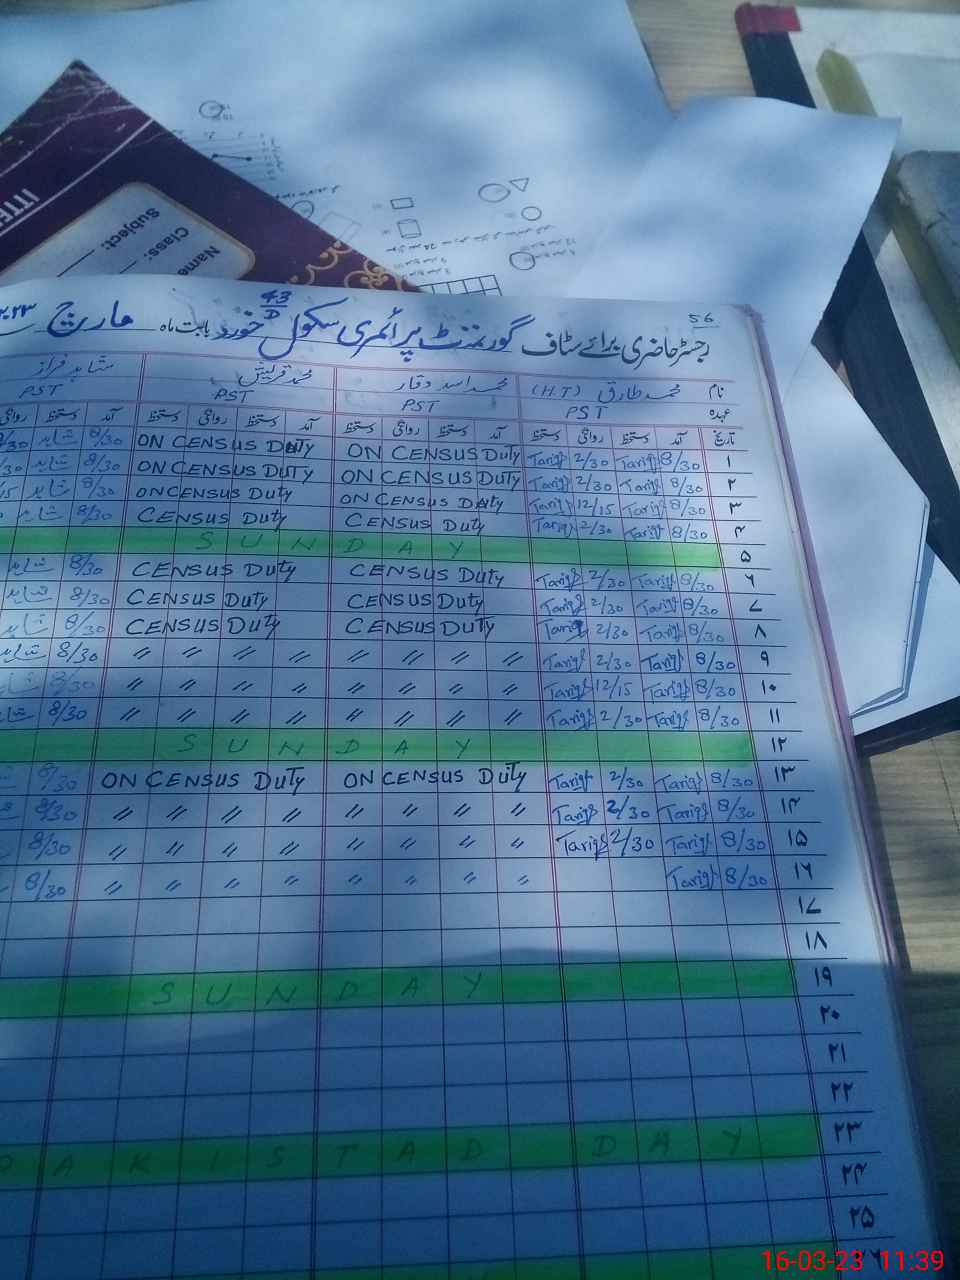 ITTEF
Name
Class:
Subject:
56
رجسٹر حاضری برائے سٹاف گورنمنٹ پرائمری سکول 43/D خورد بابت ماہ مارچ ۲۰۲۳
نام محمد طارق (H.T) محمد اسد وقار محمد قریش شاہد فراز
عہدہ PST PST PST PST
تاریخ آمد دستخط روانگی دستخط آمد دستخط روانگی دستخط آمد دستخط روانگی دستخط آمد دستخط روانگی
۱ 8/30 Tariq 2/30 Tariq ON CENSUS Duty ON CENSUS Duty 8/30 شاہد 8/30
۲ 8/30 Tariq 2/30 Tariq ON CENSUS Duty ON CENSUS DUTY 8/30 شاہد /30
۳ 8/30 Tariq 12/15 Tariq ON CENSUS Duty ON CENSUS Duty 8/30 شاہد /15
۴ 8/30 Tariq 2/30 Tariq CENSUS Duty CENSUS Duty 8/30 شاہد
۵ SUNDAY
۶ 8/30 Tariq 2/30 Tariq CENSUS Duty CENSUS Duty 8/30 شاہد
۷ 8/30 Tariq 2/30 Tariq CENSUS Duty CENSUS Duty 8/30 شاہد
۸ 8/30 Tariq 2/30 Tariq CENSUS DUTY CENSUS Duty 8/30 شاہد
۹ 8/30 Tariq 2/30 Tariq 〃 〃 〃 〃 〃 〃 〃 〃 8/30 شاہد
۱۰ 8/30 Tariq 12/15 Tariq 〃 〃 〃 〃 〃 〃 〃 〃 8/30 شاہد
۱۱ 8/30 Tariq 2/30 Tariq 〃 〃 〃 〃 〃 〃 〃 〃 8/30 شاہد
۱۲ SUNDAY
۱۳ 8/30 Tariq 2/30 Tariq ON CENSUS DUTY ON CENSUS DUTY 8/30
۱۴ 8/30 Tariq 2/30 Tariq 〃 〃 〃 〃 〃 〃 〃 〃 8/30
۱۵ 8/30 Tariq 2/30 Tariq 〃 〃 〃 〃 〃 〃 〃 〃 8/30
۱۶ 8/30 Tariq 〃 〃 〃 〃 〃 〃 〃 〃 8/30
۱۷
۱۸
۱۹ SUNDAY
۲۰
۲۱
۲۲
۲۳ PAKISTAN DAY
۲۴
۲۵
16-03-23 11:39